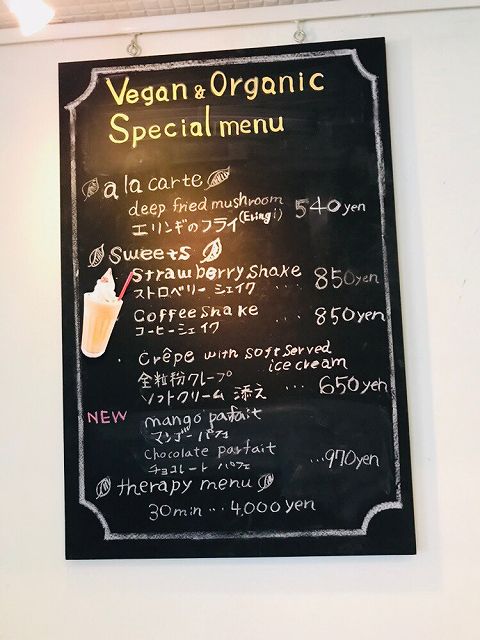 Vegan & Organic
Special menu
a la carte
deep fried mushroom
エリンギのフライ (Eringi) 540yen
Sweets
Strawberry shake
ストロベリー シェイク ... 850yen
Coffee shake
コーヒーシェイク ... 850yen
Crêpe with soft served
ice cream
全粒粉クレープ
ソフトクリーム 添え ... 650yen
NEW mango parfait
マンゴー パフェ
Chocolate parfait
チョコレート パフェ ...970yen
therapy menu
30min ... 4,000yen